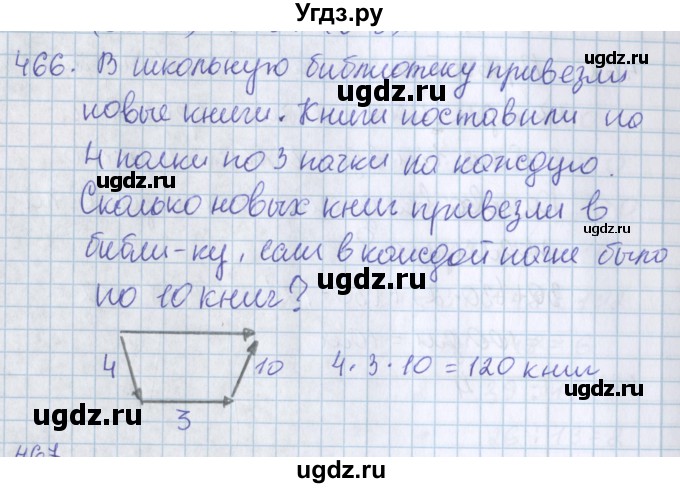 Угдз.ру
466. В школьную библиотеку привезли
новые книги. Книги поставили на
4 полки по 3 пачки на каждую.
Сколько новых книг привезли в
библи-ку, если в каждой пачке было
по 10 книг?
4 10 4 · 3 · 10 = 120 книг
3
467
ugdz.ru
ugdz.ru
ugdz.ru
ugdz.ru
ugdz.ru
ugdz.ru
ugdz.ru
ugdz.ru
ugdz.ru
ugdz.ru